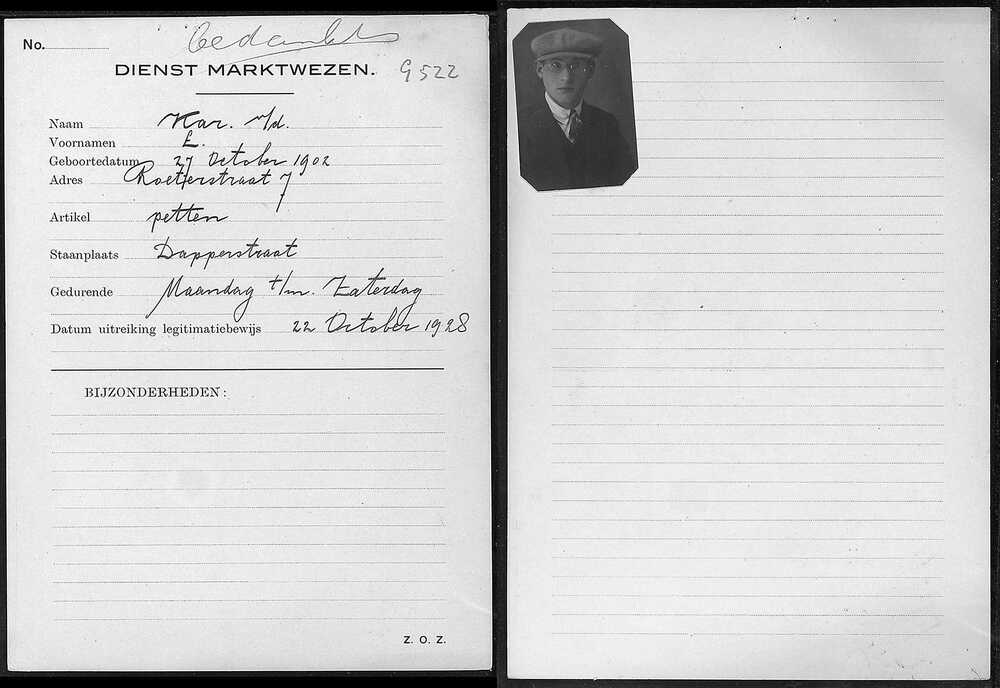 No.
bedankt
DIENST MARKTWEZEN. G 522
Naam Kar. v/d.
Voornamen E.
Geboortedatum 27 October 1902
Adres Roeterstraat 7
Artikel petten
Staanplaats Dapperstraat
Gedurende Maandag t/m. Zaterdag
Datum uitreiking legitimatiebewijs 22 October 1928
BIJZONDERHEDEN:
Z. O. Z.